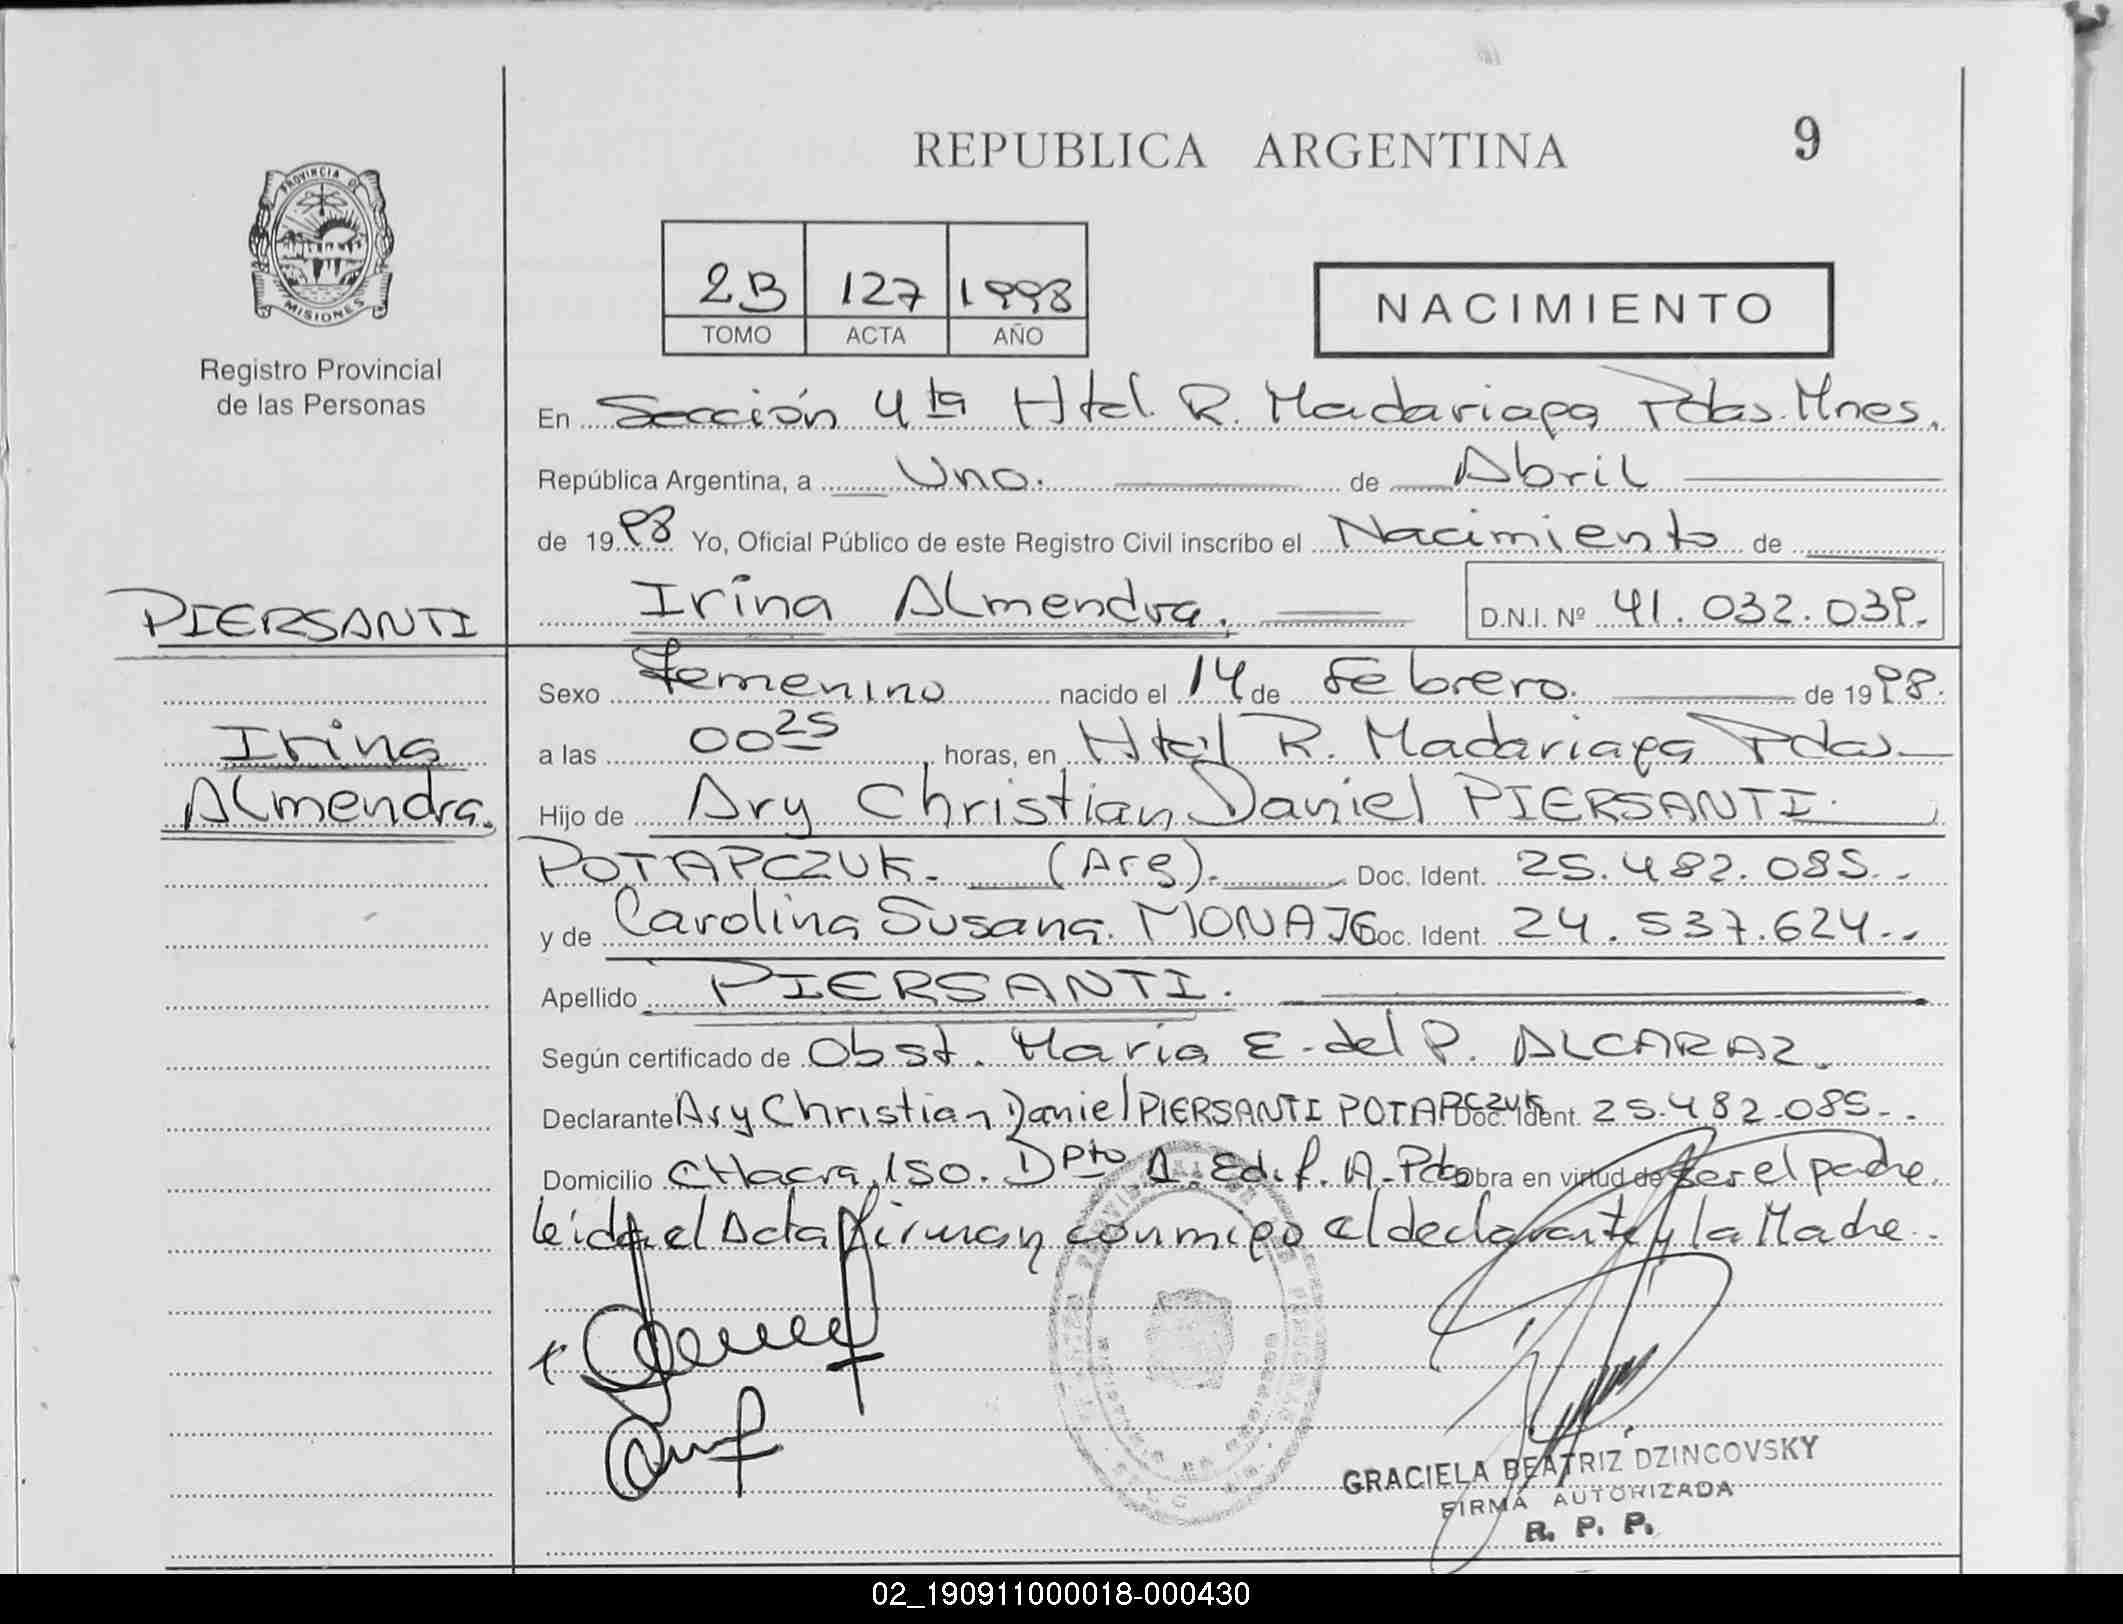 REPUBLICA ARGENTINA
9
PROVINCIA DE
MISIONES
Registro Provincial
de las Personas
2B 127 1998
TOMO ACTA AÑO
NACIMIENTO
En Sección 4ta Htal. R. Madariaga Pdas. Mnes.
República Argentina, a Uno. de Abril
de 1998 Yo, Oficial Público de este Registro Civil inscribo el Nacimiento de
PIERSANTI
Irina Almendra. D.N.I. Nº 41.032.039.
Sexo Femenino nacido el 14 de Febrero. de 1998.
Irina
a las 00 25 horas, en Htal R. Madariaga Pdas
Almendra.
Hijo de Ary Christian Daniel PIERSANTI
POTAPCZUK. (Arg). Doc. Ident. 25.482.085.
y de Carolina Susana. MONAJE Doc. Ident. 24.537.624.
Apellido PIERSANTI.
Según certificado de Obst. Maria E. del P. ALCARAZ.
Declarante Ary Christian Daniel PIERSANTI POTAPCZUK Doc. Ident. 25.482.085.
Domicilio CHacra 150. Dpto 1. Edif. A. Pdas Obra en virtud de Ser el padre
leida el Acta firman conmigo el declarante y la Madre.
GRACIELA BEATRIZ DZINCOVSKY
FIRMA AUTORIZADA
R. P. P.
02_190911000018-000430